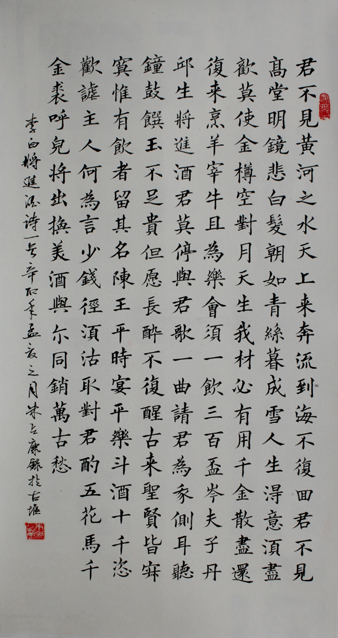 君不見黄河之水天上来奔流到海不復回君不見
髙堂明鏡悲白髮朝如青絲暮成雪人生得意須盡
歡莫使金樽空對月天生我材必有用千金散盡還
復来烹羊宰牛且為樂會須一飲三百盃岑夫子丹
邱生將進酒君莫停與君歌一曲請君為我側耳聽
鐘鼓饌玉不足貴但愿長醉不復醒古来聖賢皆寂
寞惟有飲者留其名陳王平時宴平樂斗酒十千恣
歡謔主人何為言少錢徑須沽取對君酌五花馬千
金裘呼兒將出換美酒與尔同銷萬古愁
李白將進酒詩一首辛卯年孟夏之月朱 康錄於古